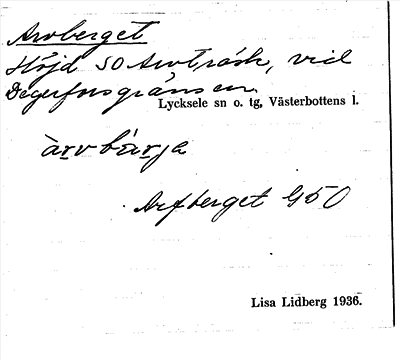 Arvberget
Höjd SO Arvträsk, vid
Degerforsgränsen
Lycksele sn o. tg, Västerbottens l.
àrvbær̀ja
Arfberget G50
Lisa Lidberg 1936.